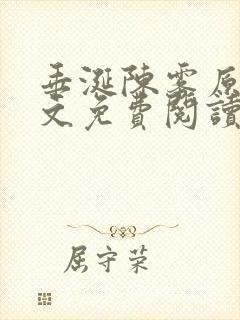 垂涎陳霧原
文免費閱讀
屈守荣